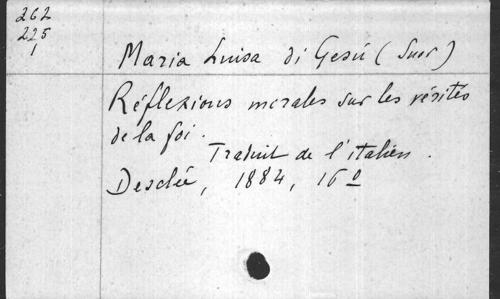 262
225
1
Maria Luisa di Gesú (Suor)
Réflexions morales sur les vérités
de la foi.
Traduit de l'italien.
Desclée, 1884, 16º